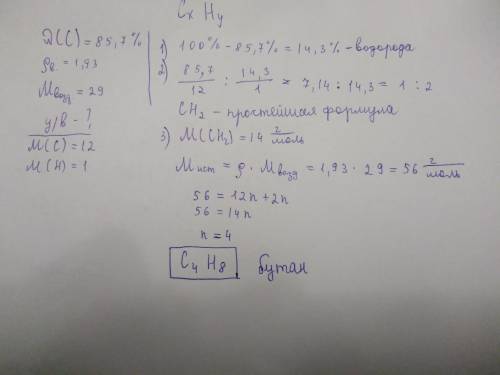 Cx Hy
ω(C) = 85,7%
ρв. = 1,93
Mвозд = 29
у/в - ?
M(C) = 12
M(H) = 1
1) 100% - 85,7% = 14,3% - водорода
2) 85,7/12 : 14,3/1 = 7,14 : 14,3 = 1 : 2
CH2 - простейшая формула
3) M(CH2) = 14 г/моль
Mист = ρ · Mвозд = 1,93 · 29 = 56 г/моль
56 = 12n + 2n
56 = 14n
n = 4
C4 H8 бутан